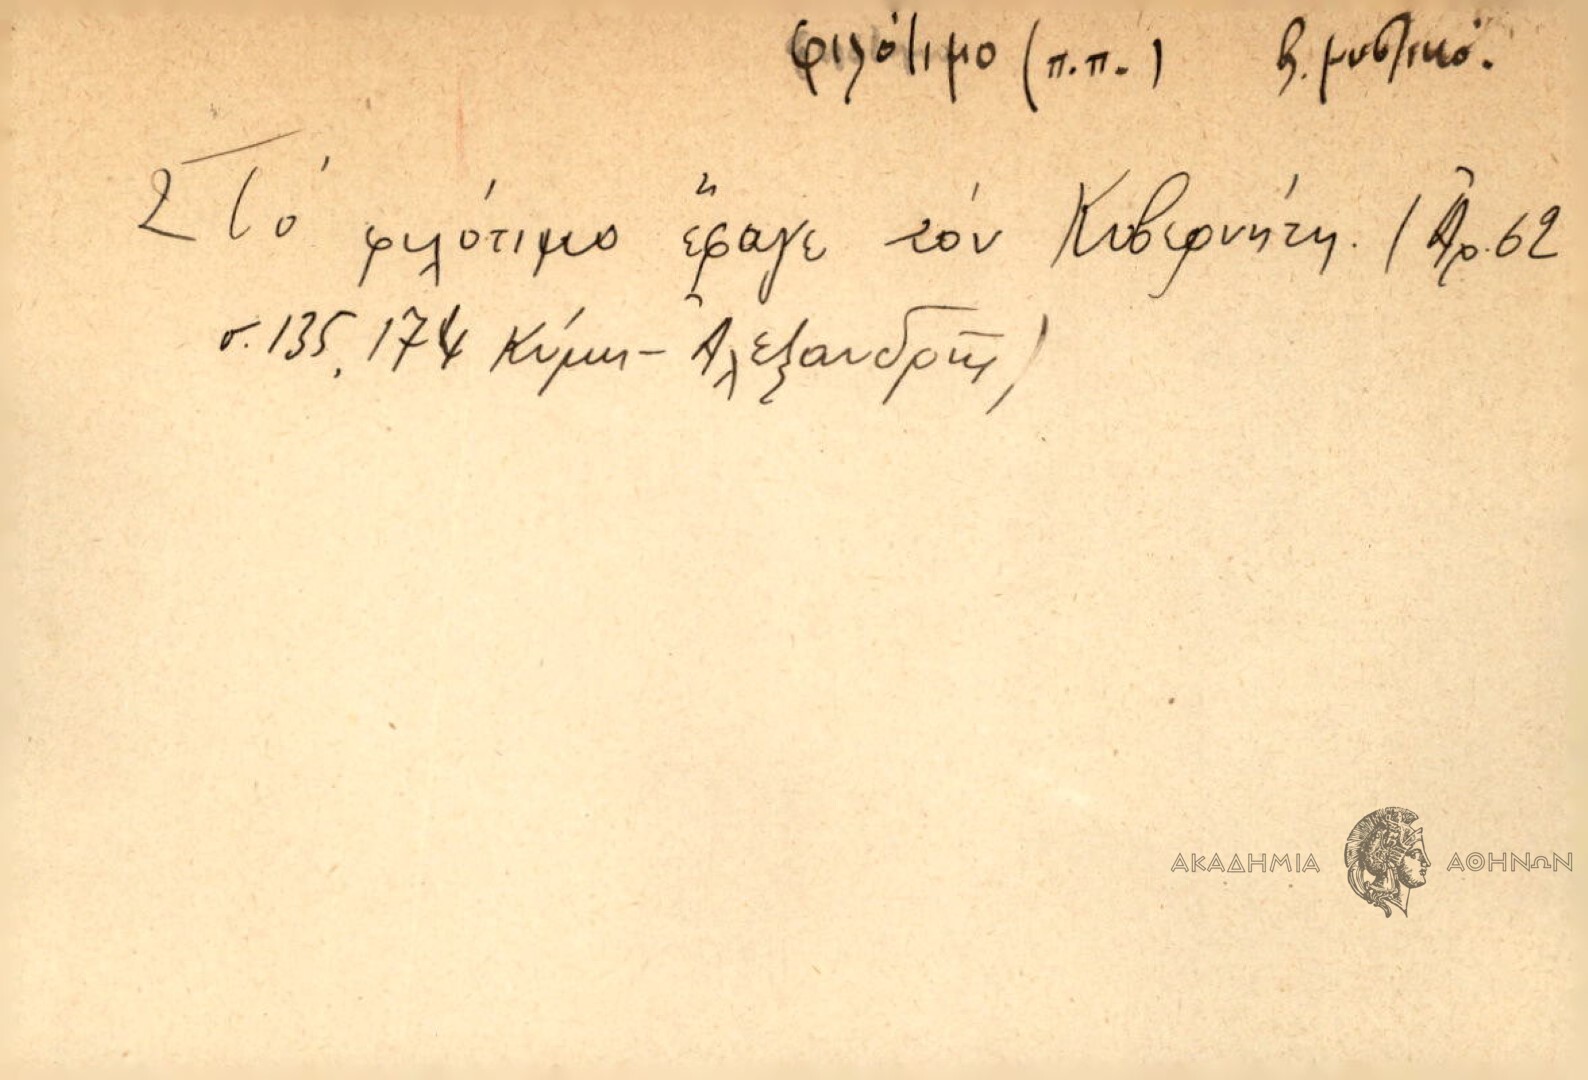 φιλότιμο (π.π.) β. μυστικό.
Στό φιλότιμο ἔφαγε τόν Κυβερνήτη. (Ἀρ. 62
σ. 135, 174 Κύμη - Ἀλεξανδρῆς)
ΑΚΑΔΗΜΙΑ ΑΘΗΝΩΝ